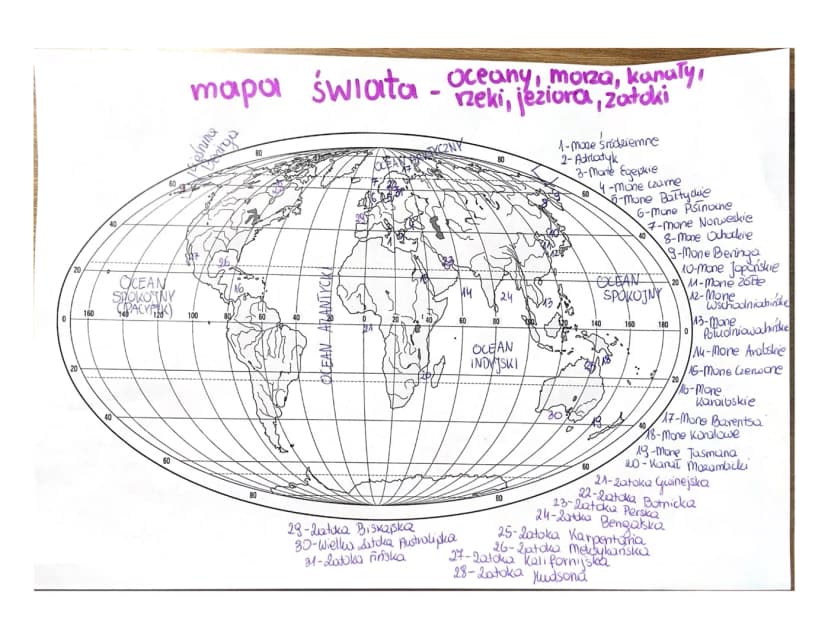 mapa świata - oceany, morza, kanały,
rzeki, jeziora, zatoki
OCEAN ARKTYCZNY
OCEAN
SPOKOJNY
(PACYFIK)
OCEAN ATLANTYCKI
OCEAN
INDYJSKI
OCEAN
SPOKOJNY
1-Morze śródziemne
2-Adriatyk
3-Morze Egejskie
4-Morze czarne
5-Morze Bałtyckie
6-Morze Północne
7-Morze Norweskie
8-Morze Ochockie
9-Morze Beringa
10-Morze Japońskie
11-Morze Żółte
12-Morze
Wschodniochińskie
13-Morze
Południowochińskie
14-Morze Arabskie
15-Morze Czerwone
16-Morze
Karaibskie
17-Morze Barentsa
18-Morze Koralowe
19-Morze Tasmana
20-Kanał Mozambicki
21-Zatoka Gwinejska
22-Zatoka Botnicka
23-Zatoka Perska
24-Zatoka Bengalska
25-Zatoka Karpentaria
26-Zatoka Meksykańska
27-Zatoka Kalifornijska
28-Zatoka Hudsona
29-Zatoka Biskajska
30-Wielka Zatoka Australijska
31-Zatoka Fińska
80
80
60
60
40
40
20
20
0
160
140
120
100
80
60
40
20
0
20
40
60
80
100
120
140
160
180
0
20
20
40
40
60
60
80
80